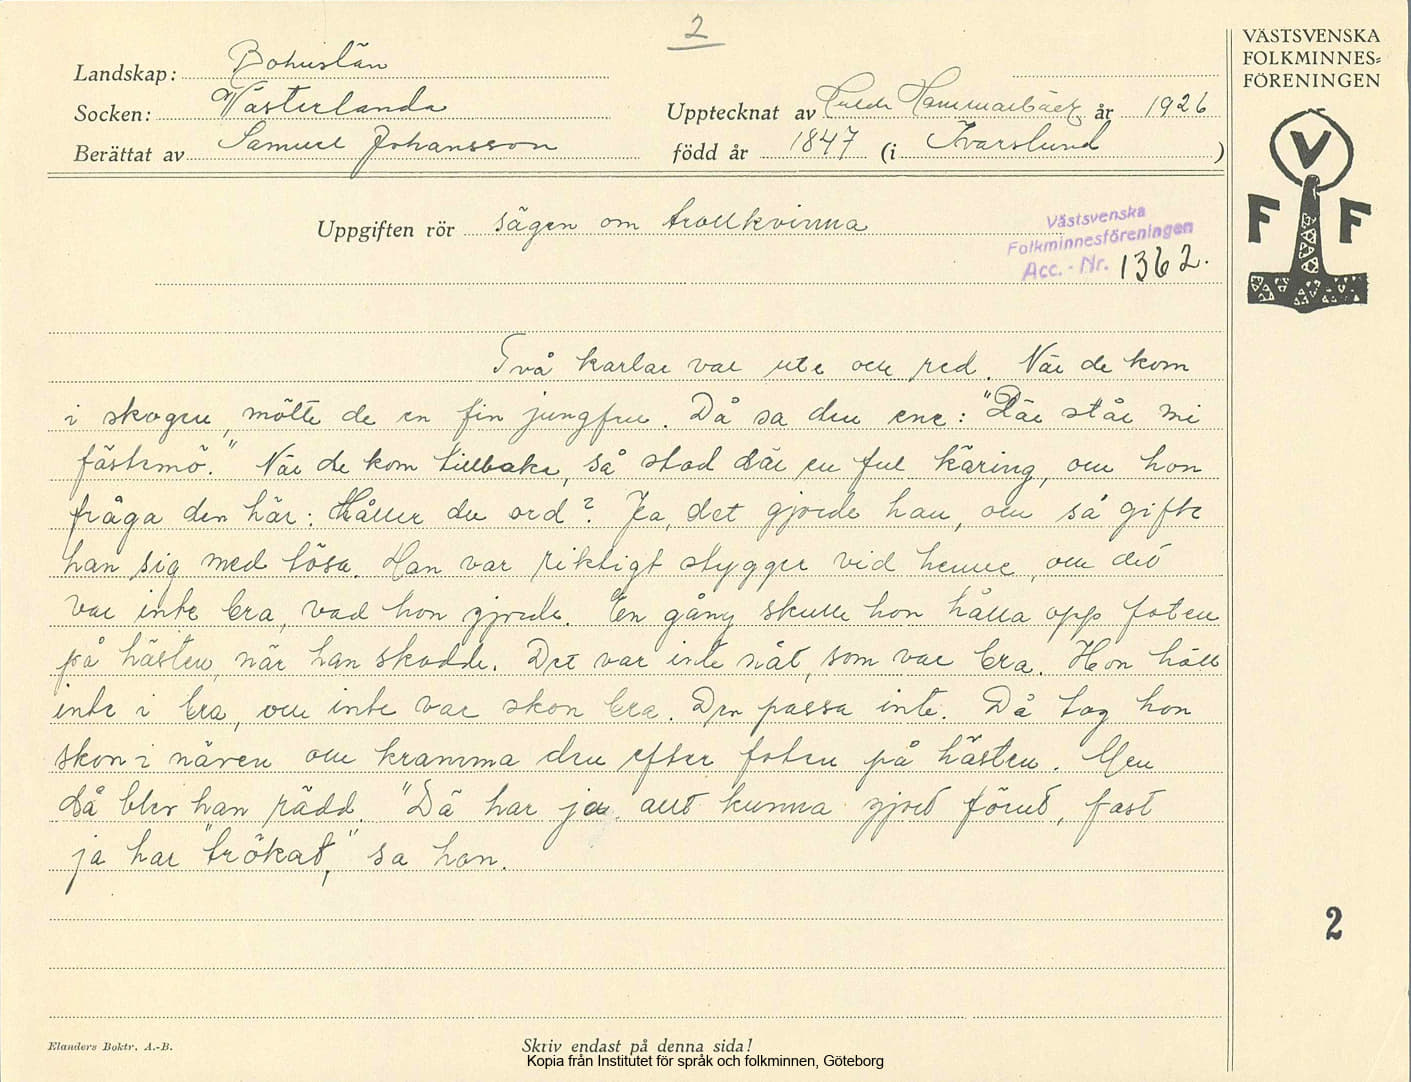 2
VÄSTSVENSKA
FOLKMINNES=
FÖRENINGEN
Landskap: Bohuslän
Socken: Västerlanda
Upptecknat av Hulda Hammarbäck år 1926
Berättat av Samuel Johansson
född år 1847 (i Ivarslund)
V
F F
Uppgiften rör sägen om trollkvinna
Västsvenska
Folkminnesföreningen
Acc. - Nr. 1362.
Två karlar var ute och red. När de kom
i skogen, mötte de en fin jungfru. Då sa den ene: "Där står mi
fästemö." När de kom tillbaka, så stod där en ful käring, och hon
fråga den här: Håller du ord? Ja, det gjorde han, och så gifte
han sig med tösa. Han var riktigt stygger vid henne, och det
var inte bra, vad hon gjorde. En gång skulle hon hålla opp foten
på hästen, när han skodde. Det var inte nåt, som var bra. Hon höll
inte i bra, och inte var skon bra. Den passa inte. Då tog hon
skon i näven och kramma den efter foten på hästen. Men
då blev han rädd. "Dä har ja allt kunna gjort förut, fast
ja har "trökat," sa hon.
2
Elanders Boktr. A.-B.
Skriv endast på denna sida!
Kopia från Institutet för språk och folkminnen, Göteborg